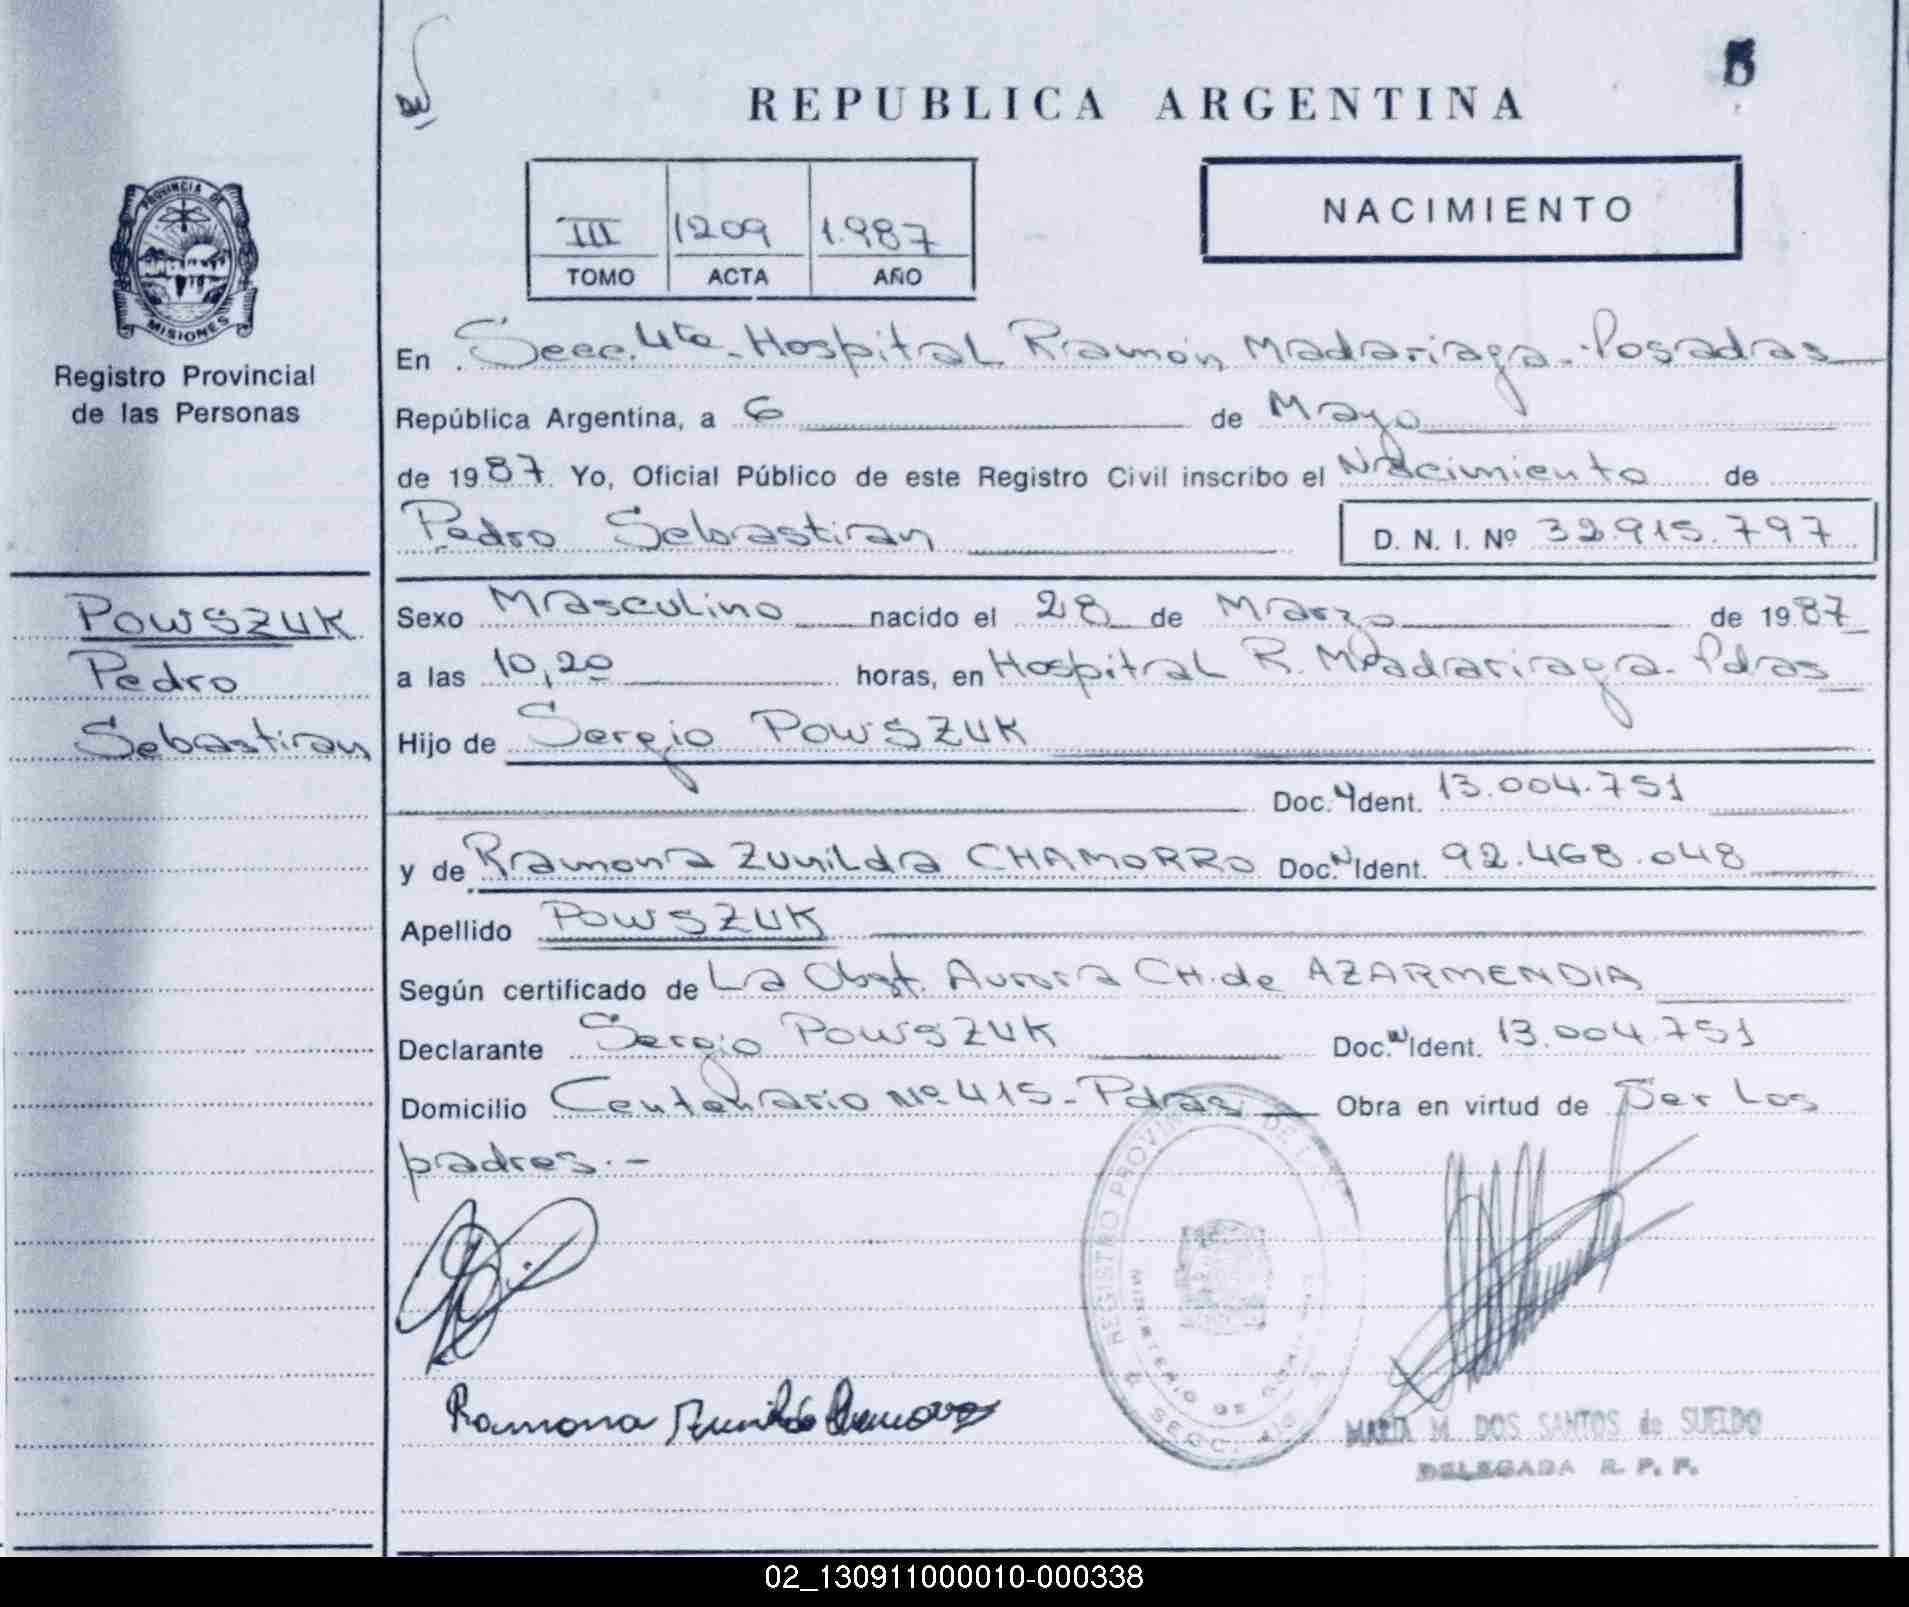 REPUBLICA ARGENTINA
III 1209 1.987
TOMO ACTA AÑO
NACIMIENTO
PROVINCIA DE
MISIONES
Registro Provincial
de las Personas
POWSZUK
Pedro
Sebastian
En Secc. 4ta. Hospital Ramón Madariaga - Posadas
República Argentina, a 6 de Mayo
de 1987 Yo, Oficial Público de este Registro Civil inscribo el Nacimiento de
Pedro Sebastian D. N. I. Nº 32.915.797
Sexo Masculino nacido el 28 de Marzo de 1987
a las 10,20 horas, en Hospital R. Madariaga - Pdas
Hijo de Sergio POWSZUK
Doc. Ident. 13.004.751
y de Ramona Zunilda CHAMORRO Doc. N Ident. 92.468.048
Apellido POWSZUK
Según certificado de La Obst. Aurora CH. de AZARMENDIA
Declarante Sergio POWSZUK Doc. N Ident. 13.004.751
Domicilio Centenario Nº 415 - Pdas Obra en virtud de Ser Los
padres.-
REGISTRO PROVIN DE
MINISTERIO DE
SECC. 4
Ramona Zunilda Chamorro
MARIA M. DOS SANTOS de SUELDO
DELEGADA R. P. P.
02_130911000010-000338